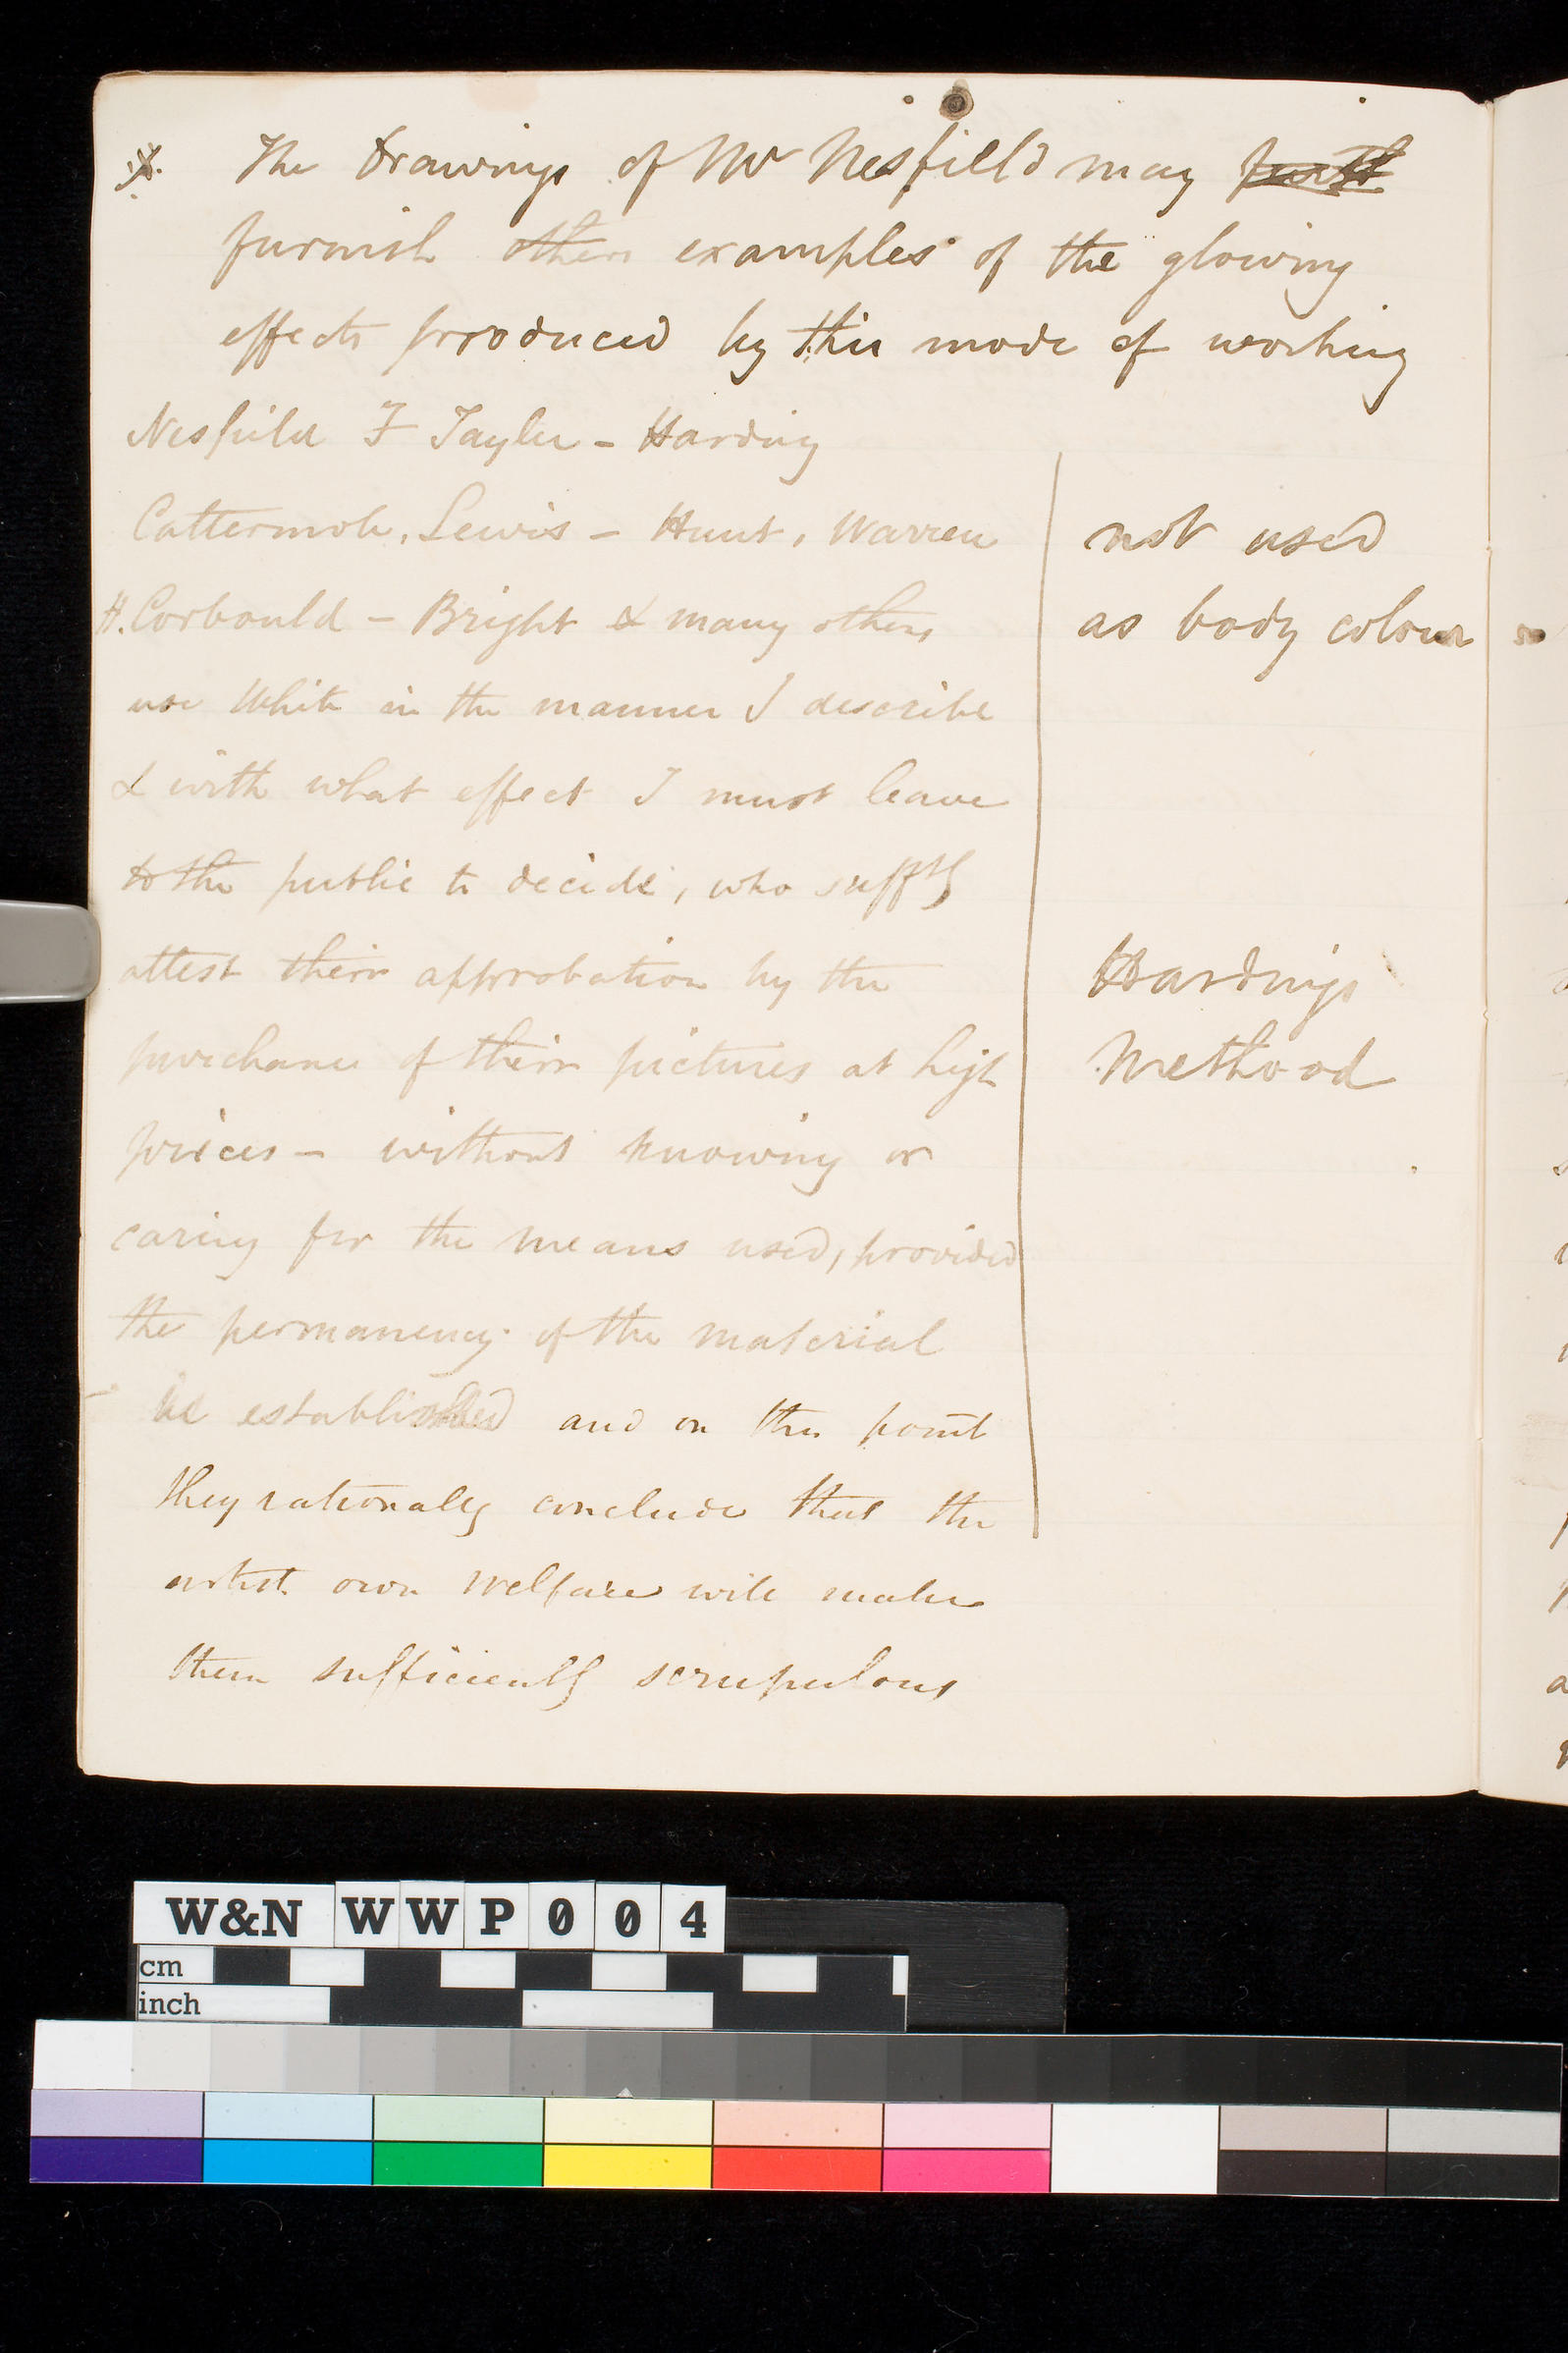 The Drawings of Mr Nesfield may
furnish others examples of the glowing
effects produced by this mode of working
Nesfield F Tayler - Harding
Cattermole, Lewis - Hunt, Warren
H. Corbould - Bright & many others
use White in the manner I describe
& with what effect I must leave
to the public to decide, who suffly
attest their approbation by the
purchase of their pictures at high
prices - without knowing or
caring for the means used, provided
the permanency of the material
be established and on this point
they rationally conclude that the
artist own welfare will make
them sufficiently scrupulous
not used
as body colour
Hardings
Method
W&N WWP004
cm
inch